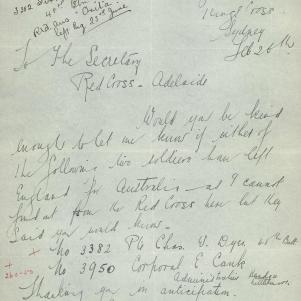 3382
48th Btn
Rtd Aus
left Eng 23rd June
Kings Cross
Sydney
Feb 26th
To The Secretary
Red Cross - Adelaide
Would you be kind
enough to let me know if either of
the following two soldiers have left
England for Australia - as I cannot
find out from the Red Cross here but they
said you would know.
+ No 3382 Pte Chas. V. Dyer 48th Batt
No 3950 Corporal E. Cank
Administrative
Headqrs
Thanking you in anticipation.